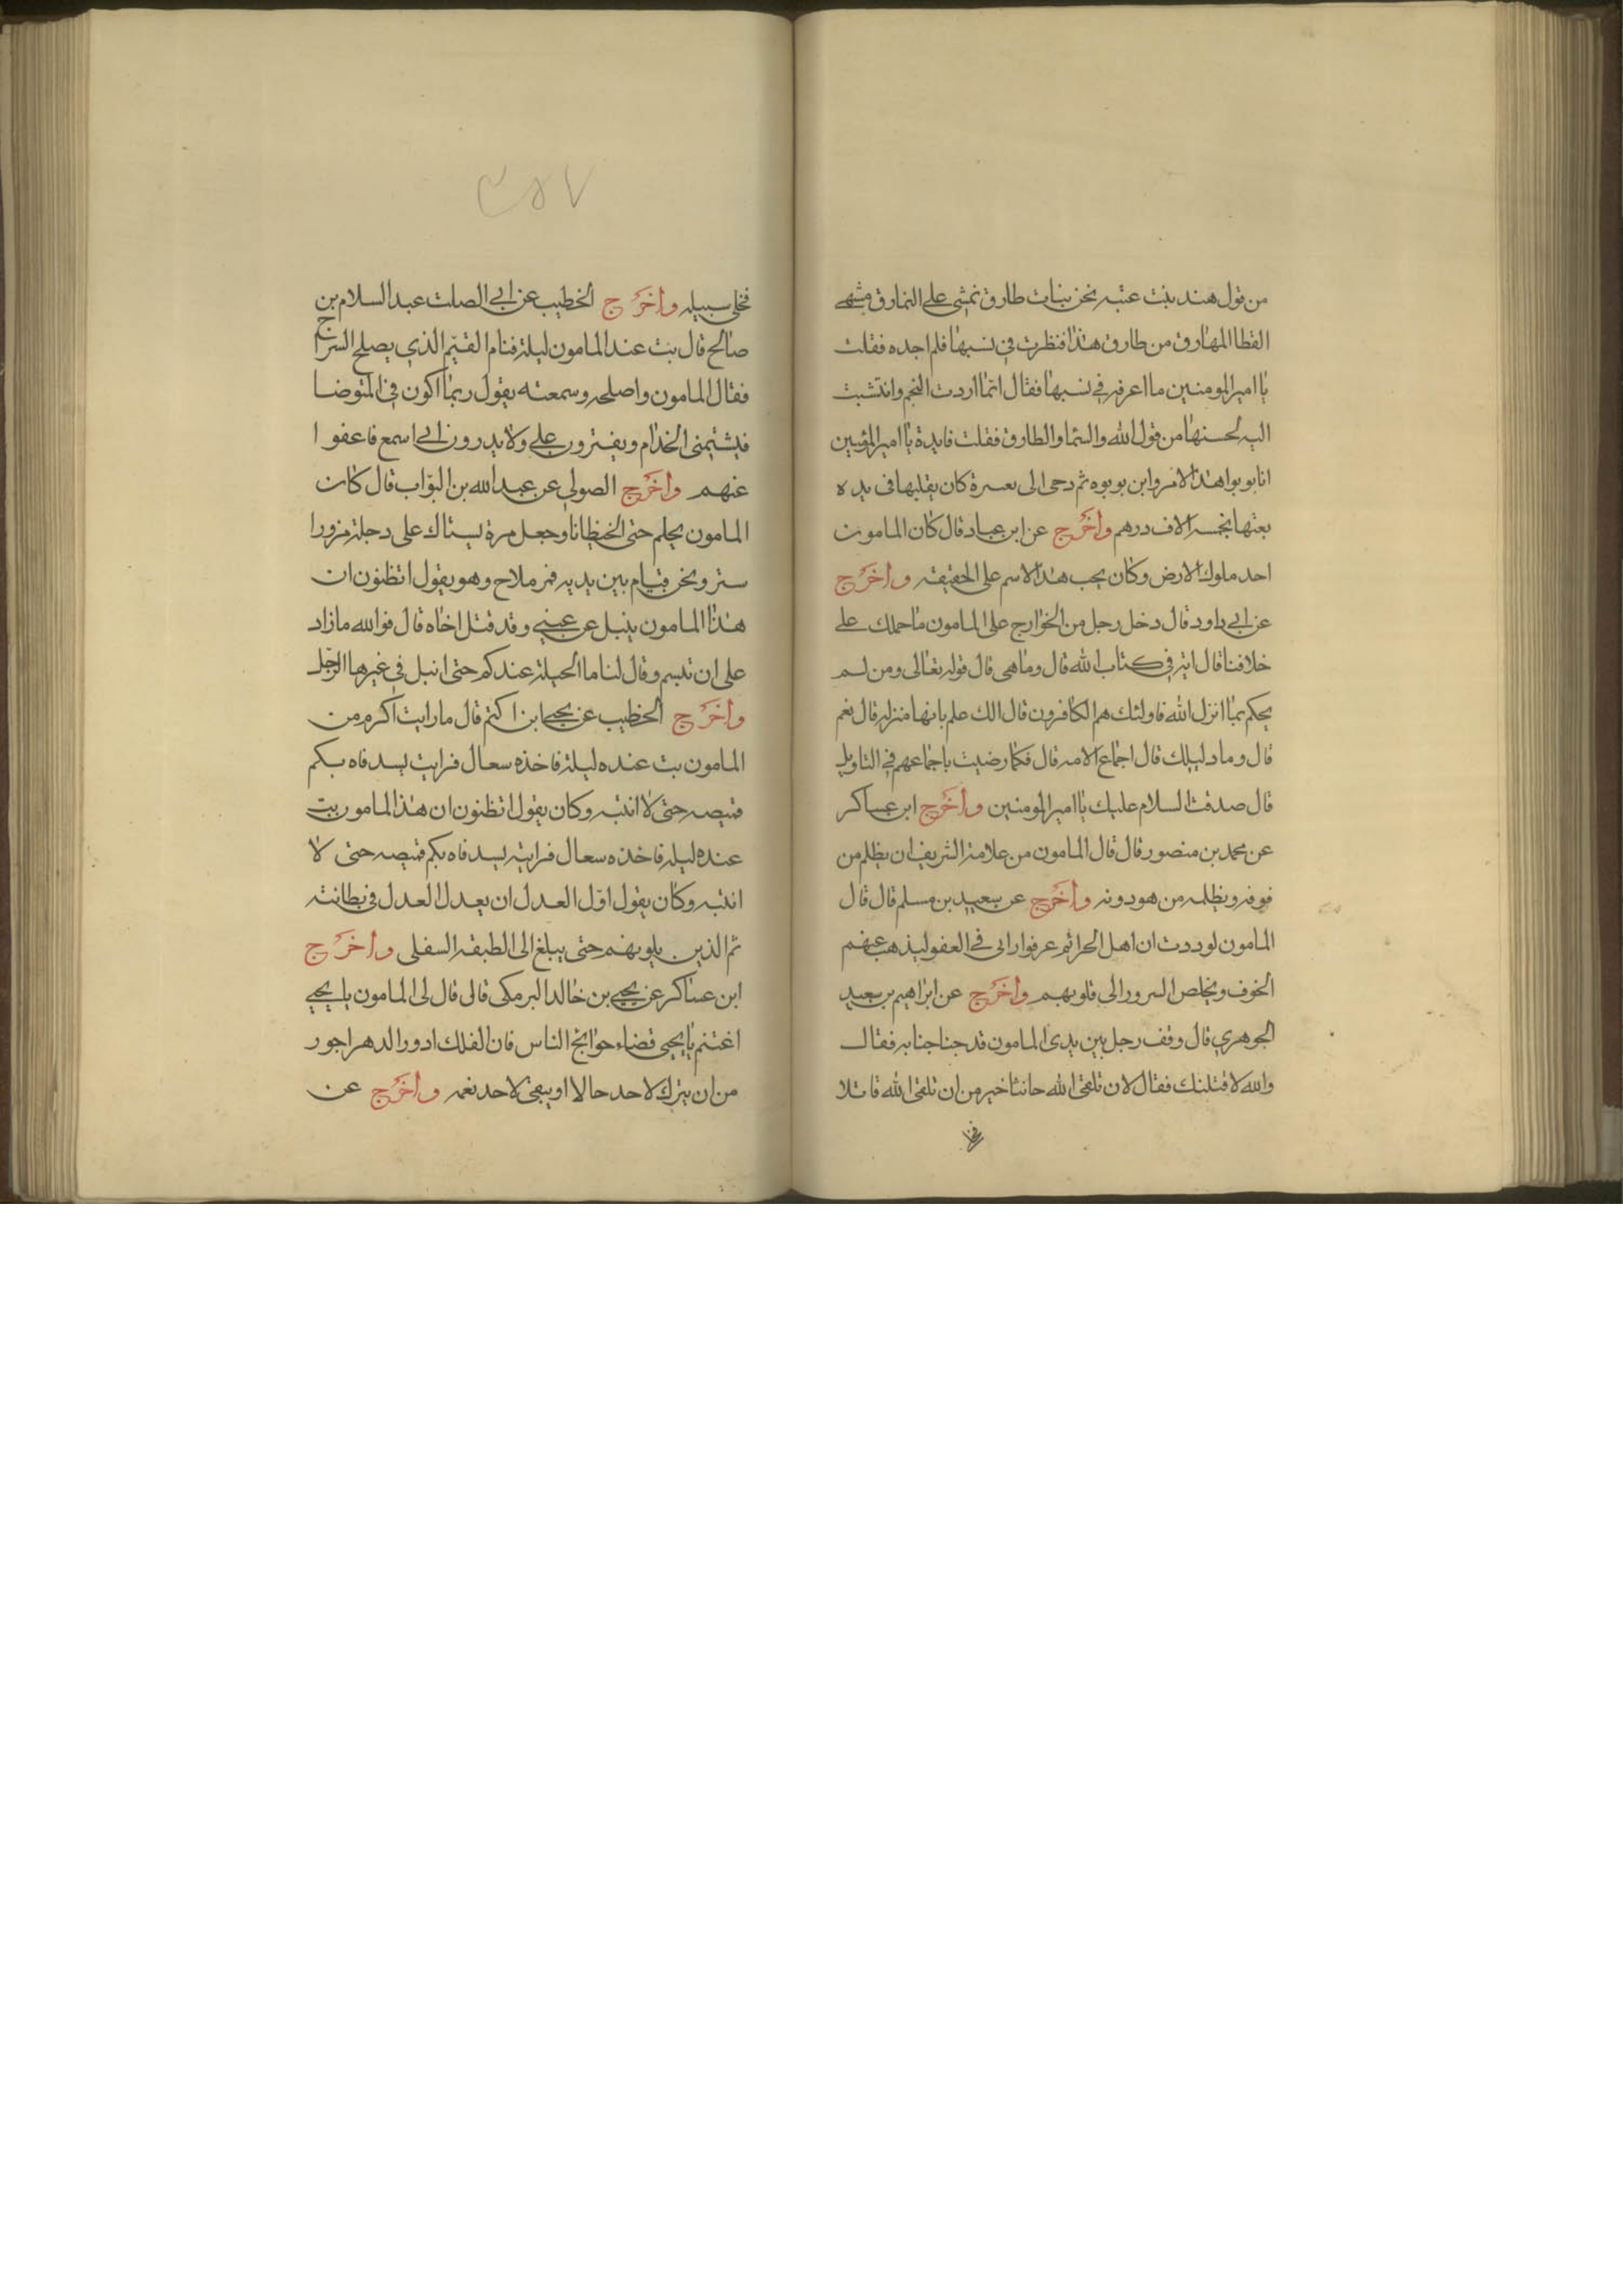 من قول هند بنت عتبه نحن بنات طارق نمشي علي النمارق مشي
القطا المهارق من طارق هذا فنظرت في نسبها فلم اجده فقلت
يا امير المومنين ما اعرفه في نسبها فقال انما اردت النجم وانتشبت
اليه لحسنها من قول الله والسما والطارق فقلت فايدة يا امير المومنين
انا بوبوا هذا الامر وابن بوبوه ثم دحي الى بعسرة كان يقلبها في يده
بعتها بخمسة الاف درهم وأخرج عن ابن عباد قال كان المامون
احد ملوك الارض وكان يجب هذا الاسم على الحقيقه وأخرج
عن ابي داود قال دخل رجل من الخوارج على المامون ما حملك علي
خلافنا قال اية في كتاب الله قال وما هي قال قوله تعالى ومن لم
يحكم بما انزل الله فاولئك هم الكافرون قال الك علم بانها منزله قال نعم
قال وما دليلك قال اجماع الامه قال فكما رضيت باجماعهم في التاويل
قال صدقت السلام عليك يا امير المومنين وأخرج ابن عساكر
عن محمد بن منصور قال قال المامون من علامة الشريف ان يظلم من
فوقه ويظلمه من هو دونه وأخرج عن سعيد بن مسلم قال قال
المامون لوددت ان اهل الجرائم عرفوا رايى في العفو ليذهب عنهم
الخوف ويخلص السرور الى قلوبهم وأخرج عن ابراهيم بن سعيد
الجوهري قال وقف رجل بين يدى المامون قد جنا جنايه فقال
والله لاقتلنك فقال لان تلقى الله حانثا خير من ان تلقى الله قاتلا
٢٥٧
فخلى سبيله وأخرج الخطيب عن ابي الصلت عبد السلام بن
صالح قال بت عند المامون ليلة فنام القيم الذي يصلح السراج
فقال المامون واصلحه وسمعته يقول ربما اكون في المتوضا
فيشتمنى الخدام ويفترون علي ولا يدرون اني اسمع فاعفوا
عنهم وأخرج الصولي عن عبد الله بن البواب قال كان
المامون يحلم حتى الخيظانا وجعل مرة يستاك على دجلة مزورا
ستر ونحن قيام بين يديه فمر ملاح وهو يقول اتظنون ان
هذا المامون ينبل عن عيني وقد قتل اخاه قال فوالله ما زاد
على ان تبسم وقال لنا ما الحيلة عندكم حتى انبل في غير هذا الرجل
وأخرج الخطيب عن يحيي ابن اكتم قال ما رايت اكرم من
المامون بت عنده ليلة فاخذه سعال فرايت يسد فاه بكم
قميصه حتى لا انتبه وكان يقول اتظنون ان هذا المامون بت
عنده ليله فاخذه سعال فرايته يسد فاه بكم قميصه حتى لا
انتبه وكان يقول اول العدل ان يعدل العدل في بطانته
ثم الذين يلونهم حتى يبلغ الى الطبقه السفلى وأخرج
ابن عساكر عن يحيي بن خالد البرمكى قال قال لى المامون يا يحيي
اغتنم يا يحيى قضاء حوائج الناس فان الفلك ادور الدهر اجور
من ان يترك لاحد حالا او يبقى لاحد نعمه وأخرج عن